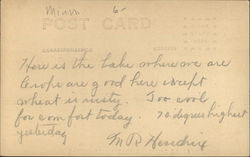 Minn 6-
POST CARD
CORRESPONDENCE
Here is the Lake where we are
Crops are good here except
wheat is rusty. Too cool
for comfort today. 70 degrees highest
yesterday
M R Hendrix